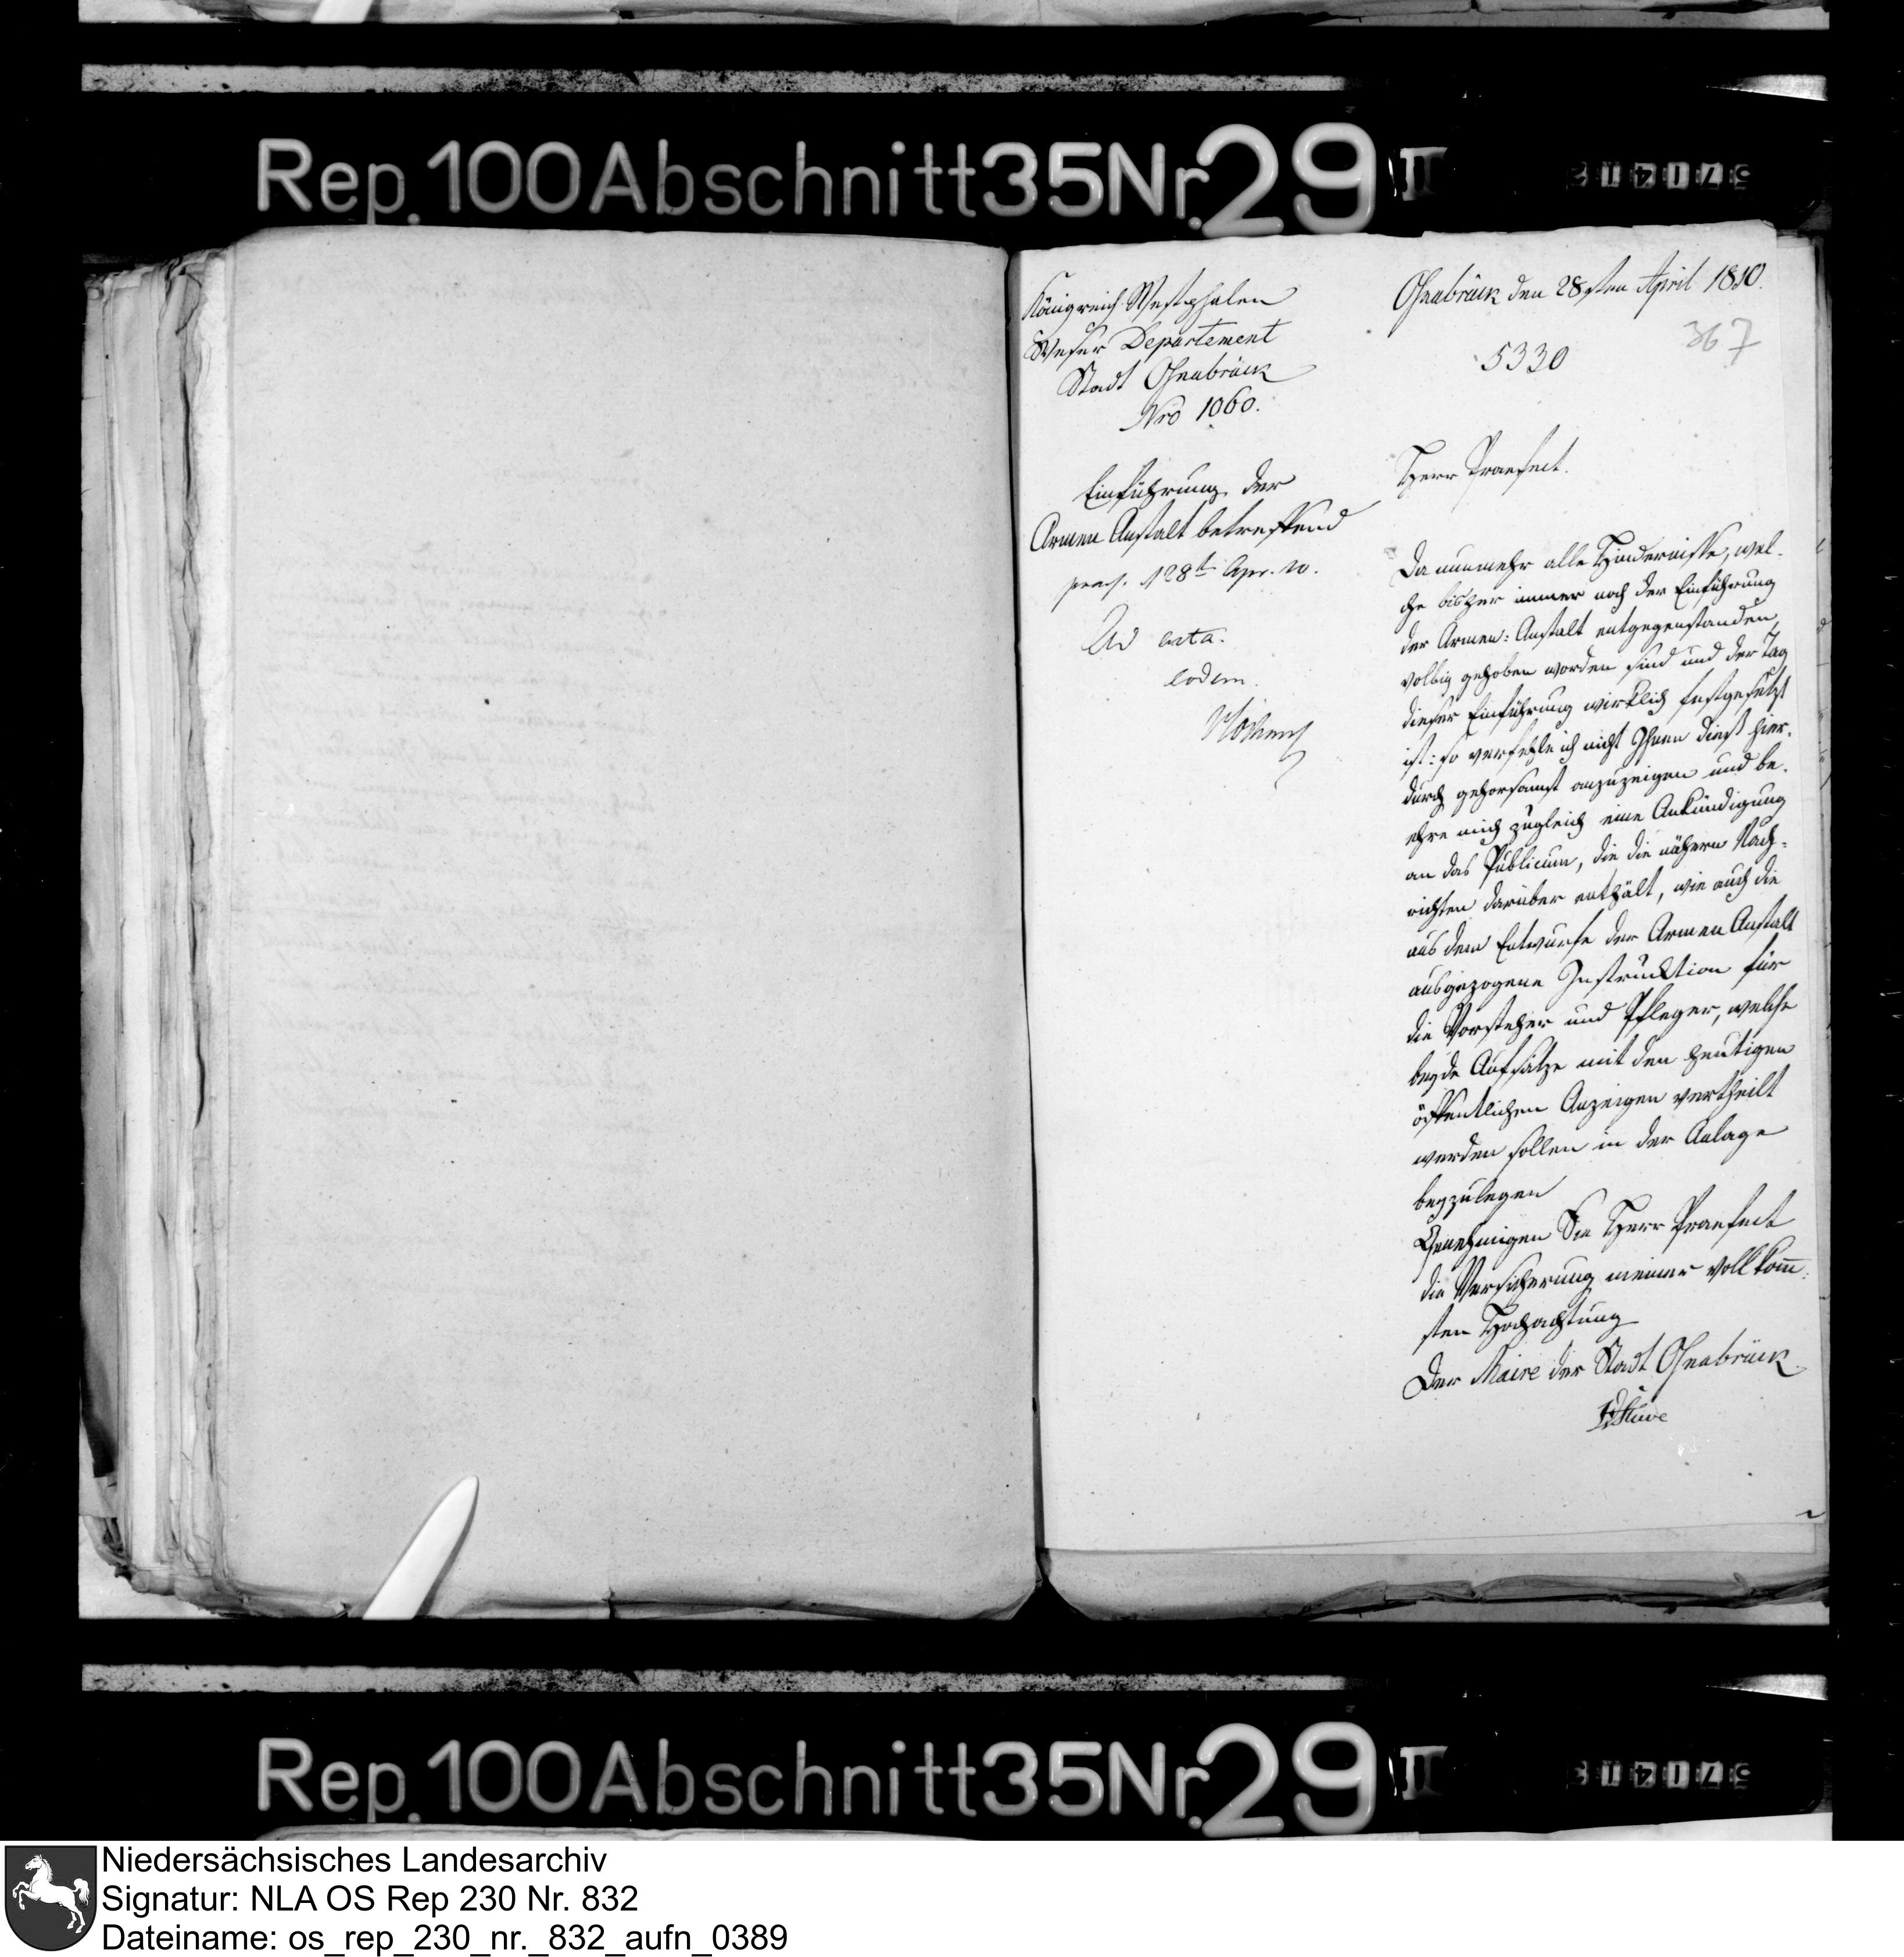 Rep. 100 Abschnitt 35 Nr. 29 II
Königreich Westphalen
Weser Departement
Stadt Osnabrück
Nro 1060.
Einführung der
Armen Anstalt betreffend
praes. 28t Apr. 10.
Ad acta.
eodem.
Osnabrück den 28sten April 1810.
367
5330
Herr Praefect.
Da nunmehr alle Hindernisse, wel-
che bisher immer noch der Einführung
der Armen: Anstalt entgegenstanden,
vollig gehoben worden sind und der Tag
dieser Einführung wirklich festgesetzt
ist: so verfehle ich nicht Ihnen dieß hier-
durch gehorsamst anzuzeigen und be-
ehre mich zugleich eine Ankündigung
an das Publicum, die die nähern Nach-
richten darüber enthält, wie auch die
aus dem Entwurfe der Armen Anstalt
ausgezogene Instruktion für
die Vorsteher und Pfleger, welche
beyde Aufsätze mit den heutigen
öffentlichen Anzeigen vertheilt
werden sollen in der Anlage
beyzulegen
Genehmigen Sie Herr Praefect
die Versicherung meiner vollkomm-
sten Hochachtung
Der Maire der Stadt Osnabrück
Stüve
Rep. 100 Abschnitt 35 Nr. 29 II
Niedersächsisches Landesarchiv
Signatur: NLA OS Rep 230 Nr. 832
Dateiname: os_rep_230_nr._832_aufn_0389